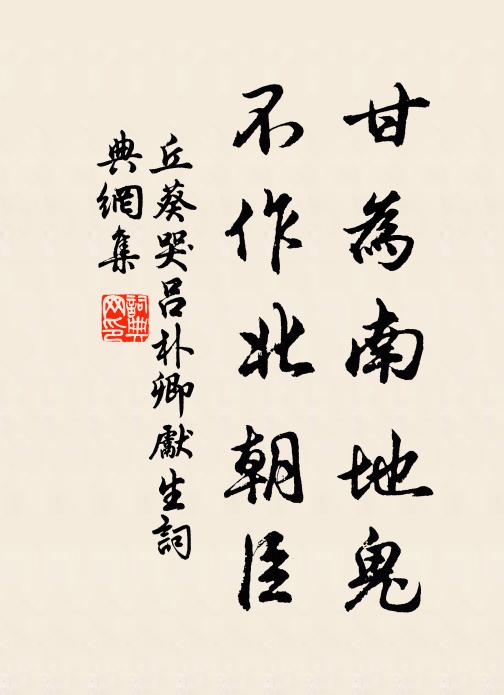 甘為南地鬼
不作北朝臣
丘葵哭呂朴卿獻生詞
典網集
詞典網印